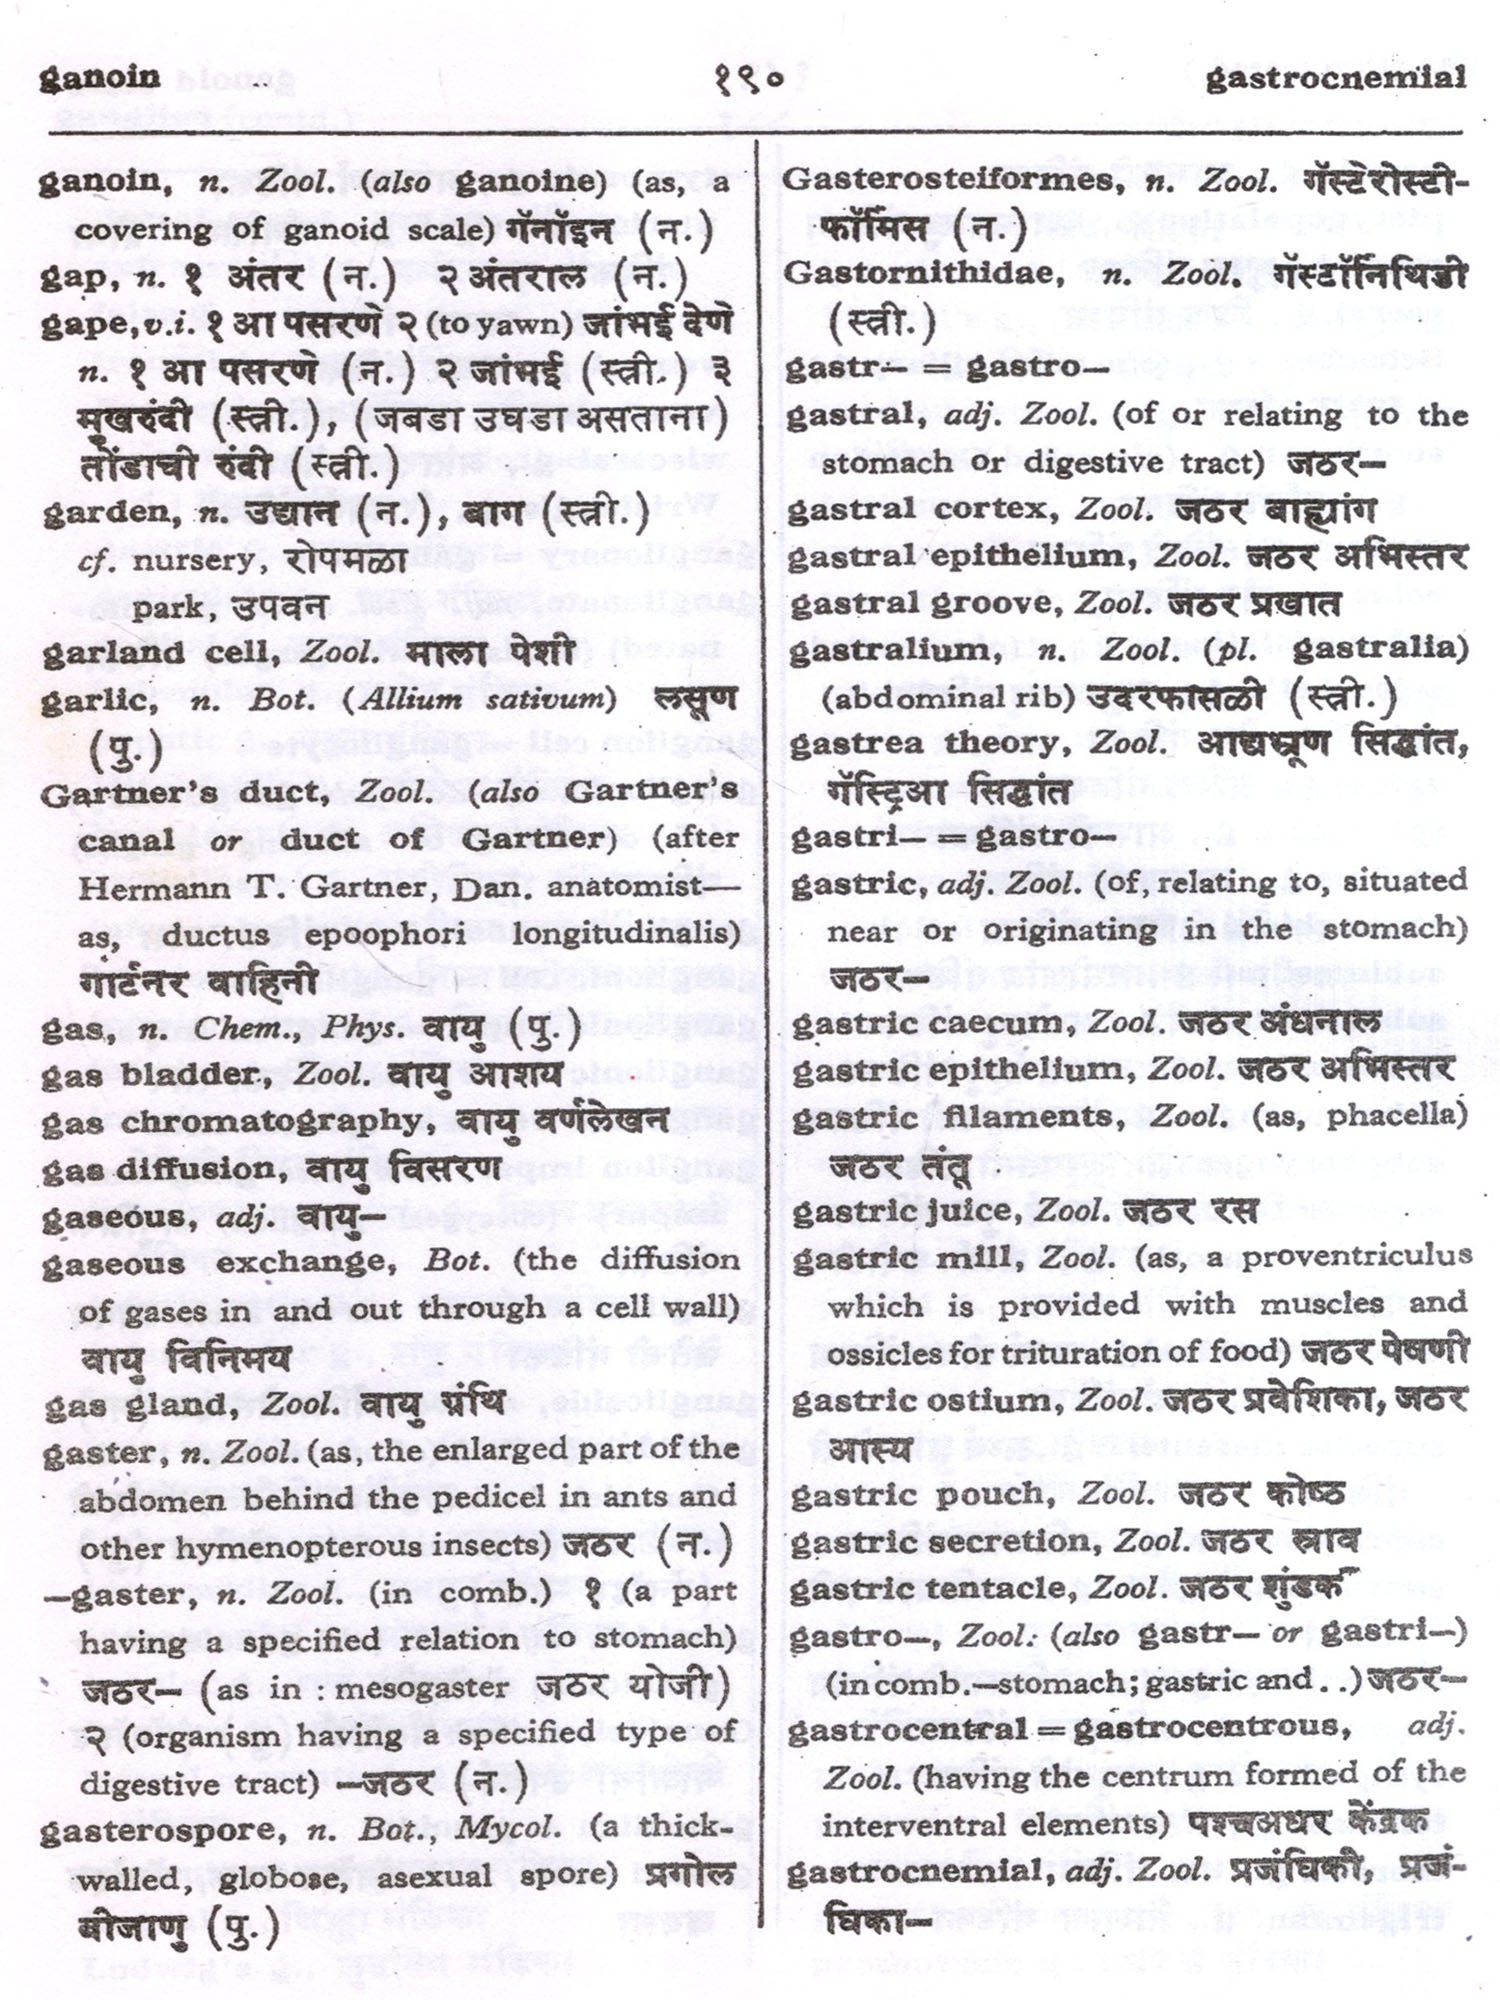 ganoin १९० gastrocnemial
ganoin, n. Zool. (also ganoine) (as, a
covering of ganoid scale) गॅनॉइन (न.)
gap, n. १ अंतर (न.) २ अंतराल (न.)
gape, v.i. १ आ पसरणे २ (to yawn) जांभई देणे
n. १ आ पसरणे (न.) २ जांभई (स्त्री.) ३
मुखरुंदी (स्त्री.), (जबडा उघडा असताना)
तोंडाची रुंदी (स्त्री.)
garden, n. उद्यान (न.), बाग (स्त्री.)
cf. nursery, रोपमळा
park, उपवन
garland cell, Zool. माला पेशी
garlic, n. Bot. (Allium sativum) लसूण
(पु.)
Gartner's duct, Zool. (also Gartner's
canal or duct of Gartner) (after
Hermann T. Gartner, Dan. anatomist—
as, ductus epoophori longitudinalis)
गार्टनर वाहिनी
gas, n. Chem., Phys. वायु (पु.)
gas bladder, Zool. वायु आशय
gas chromatography, वायु वर्णलेखन
gas diffusion, वायु विसरण
gaseous, adj. वायु–
gaseous exchange, Bot. (the diffusion
of gases in and out through a cell wall)
वायु विनिमय
gas gland, Zool. वायु ग्रंथि
gaster, n. Zool. (as, the enlarged part of the
abdomen behind the pedicel in ants and
other hymenopterous insects) जठर (न.)
–gaster, n. Zool. (in comb.) १ (a part
having a specified relation to stomach)
जठर– (as in : mesogaster जठर योजी)
२ (organism having a specified type of
digestive tract) –जठर (न.)
gasterospore, n. Bot., Mycol. (a thick-
walled, globose, asexual spore) प्रगोल
बीजाणु (पु.)
Gasterosteiformes, n. Zool. गॅस्टेरोस्टी-
फॉर्मिस (न.)
Gastornithidae, n. Zool. गॅस्टॉर्निथिडी
(स्त्री.)
gastr– = gastro–
gastral, adj. Zool. (of or relating to the
stomach or digestive tract) जठर–
gastral cortex, Zool. जठर बाह्यांग
gastral epithelium, Zool. जठर अभिस्तर
gastral groove, Zool. जठर प्रखात
gastralium, n. Zool. (pl. gastralia)
(abdominal rib) उदरफासळी (स्त्री.)
gastrea theory, Zool. आद्यभ्रूण सिद्धांत,
गॅस्ट्रिआ सिद्धांत
gastri– = gastro–
gastric, adj. Zool. (of, relating to, situated
near or originating in the stomach)
जठर–
gastric caecum, Zool. जठर अंधनाल
gastric epithelium, Zool. जठर अभिस्तर
gastric filaments, Zool. (as, phacella)
जठर तंतू
gastric juice, Zool. जठर रस
gastric mill, Zool. (as, a proventriculus
which is provided with muscles and
ossicles for trituration of food) जठर पेषणी
gastric ostium, Zool. जठर प्रवेशिका, जठर
आस्य
gastric pouch, Zool. जठर कोष्ठ
gastric secretion, Zool. जठर स्राव
gastric tentacle, Zool. जठर शुंडक
gastro–, Zool. (also gastr– or gastri–)
(in comb.–stomach; gastric and . .) जठर–
gastrocentral = gastrocentrous, adj.
Zool. (having the centrum formed of the
interventral elements) पश्चअधर केंद्रक
gastrocnemial, adj. Zool. प्रजंघिकी, प्रजं-
घिका–